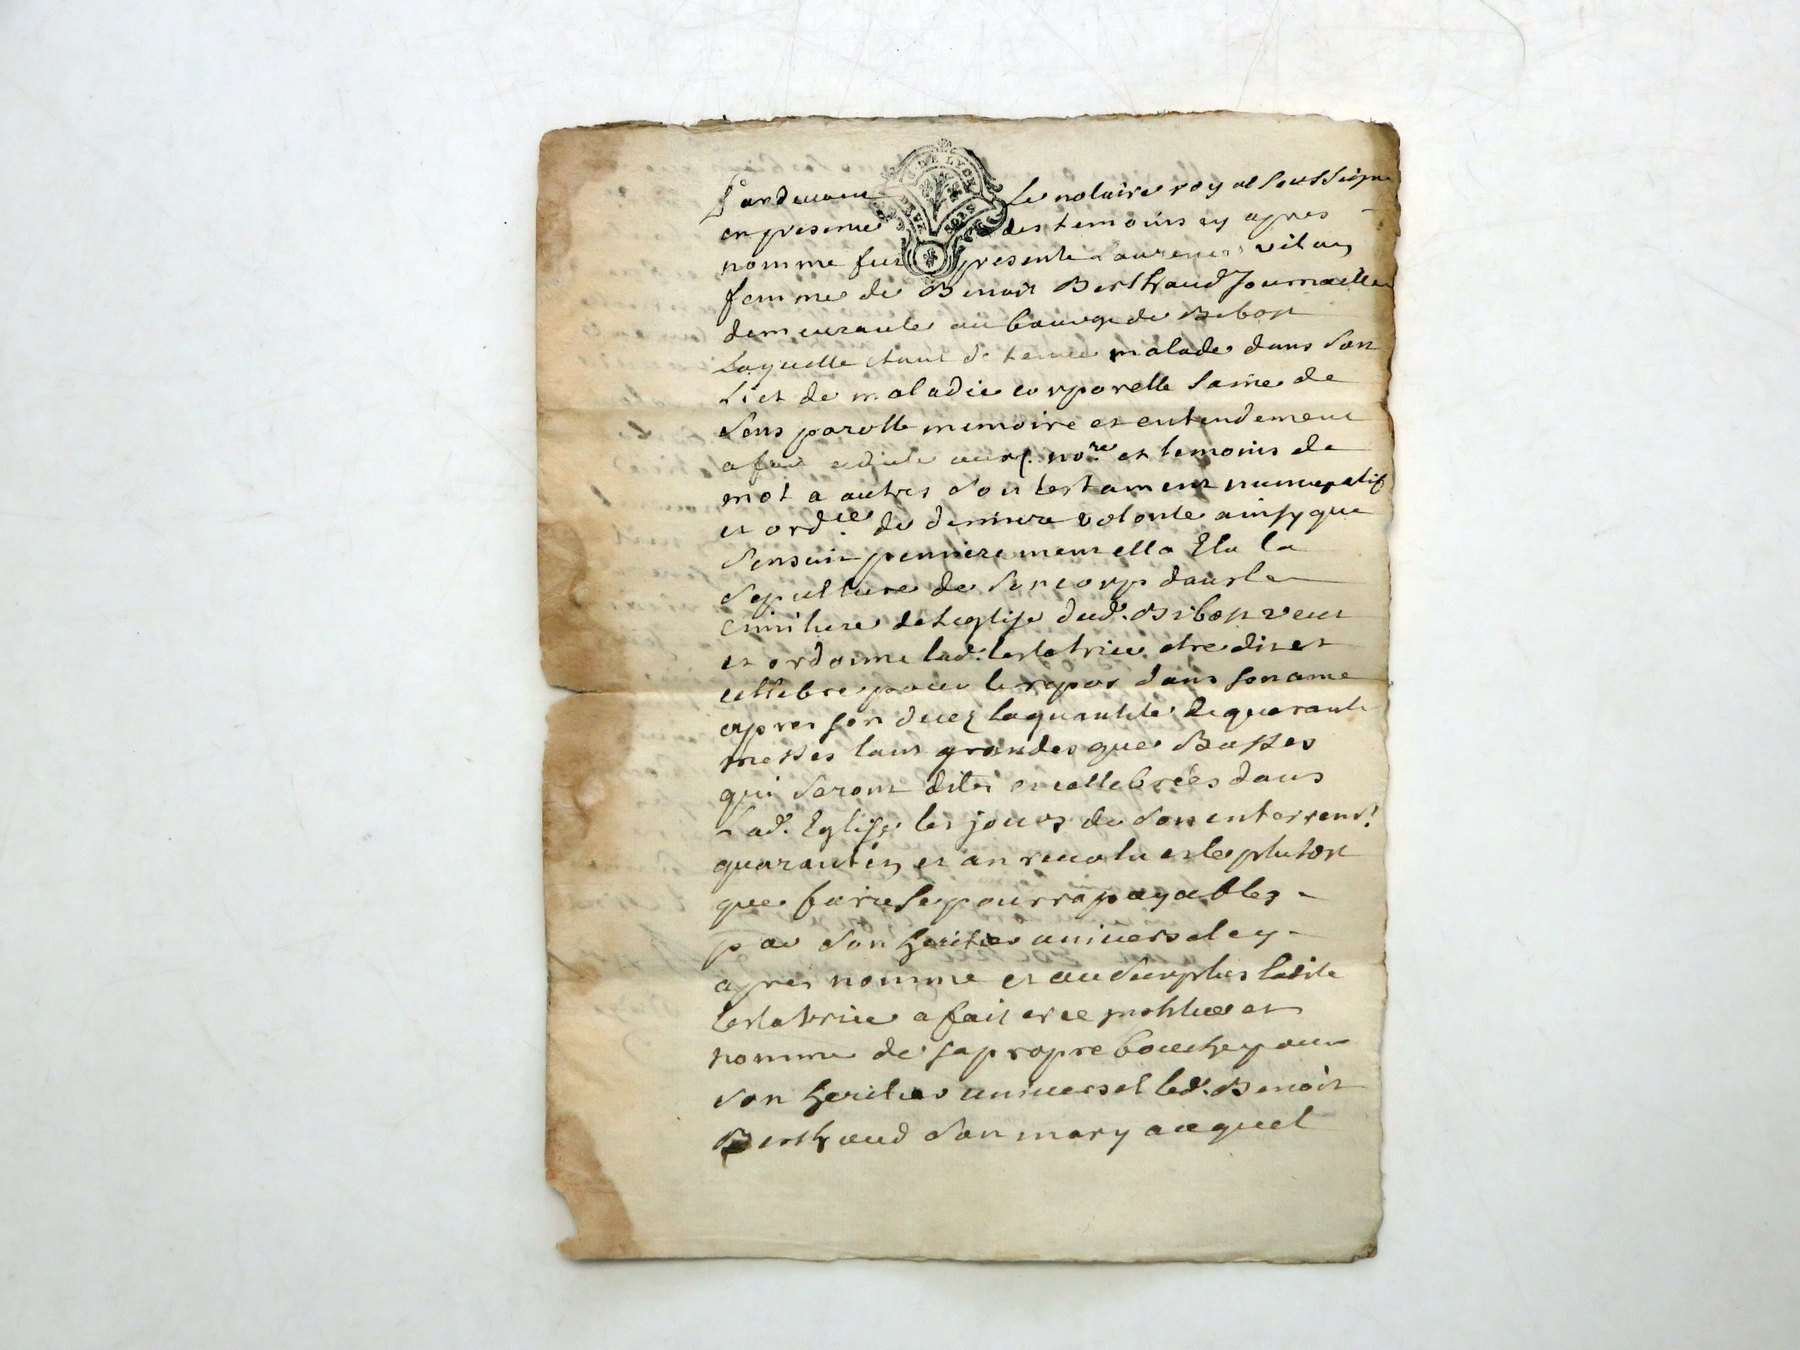 Pardevant Le notaire royal soussigne
en presence des temoins cy apres
nomme fut presente Laurence vilay
femme de Benoit Berthaud Journallier
demeurante au bourg de Bibost
Laquelle etant detenue malade dans son
Lict de maladie corporelle saine de
sens parolle memoire et entendement
a fait no.re et temoins de
mot a autres son testament nuncupatif
et ord.ce de derniere volonte ainsy que
sensuit premierement ella Elu la
sepulture de son corp dans le
cimitiere de Leglise dud. Bibost veut
et ordonne lad. testatrice etre dit et
cellebre pour le repos dans son ame
apres son decez la quantite de quarante
messes tant grandes que Basses
qui seront dites et cellebrées dans
Lad. Eglise les jours de son enterremt
quarantin et an revolu et le plutost
que faire se pourra payables
par son heritier universel cy
apres nomme et au surplus ladite
testatrice a fait et
nomme de sa propre bouche pour
son heritier universel led. Benoit
Berthaud son mary auquel
DE LYON